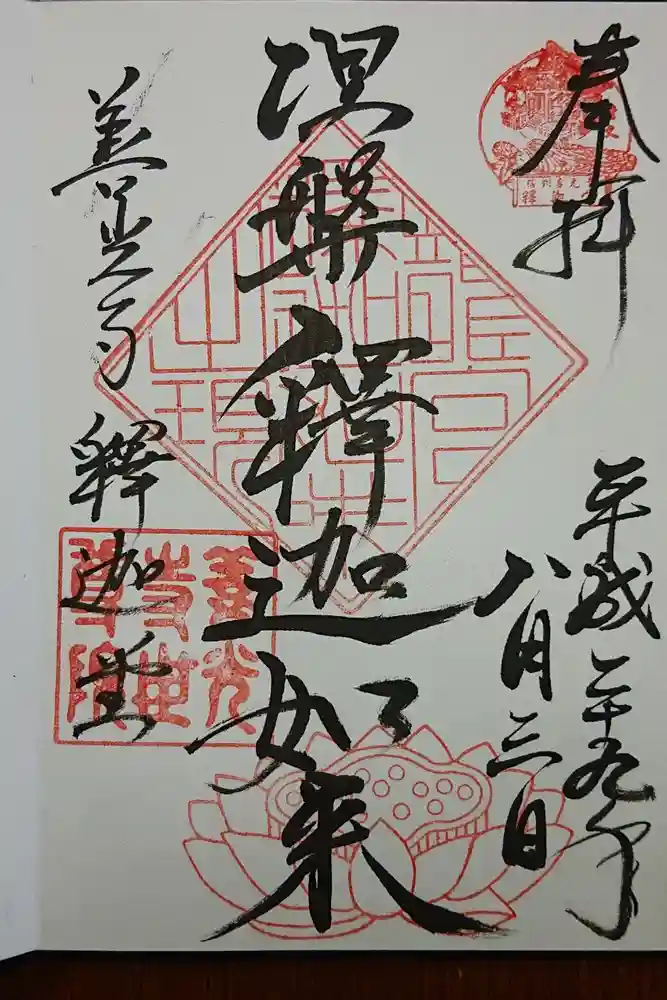 奉拝
平成二十九年
八月三日
涅槃釋迦如来
善光寺 釋迦堂
善光
寺世
尊院